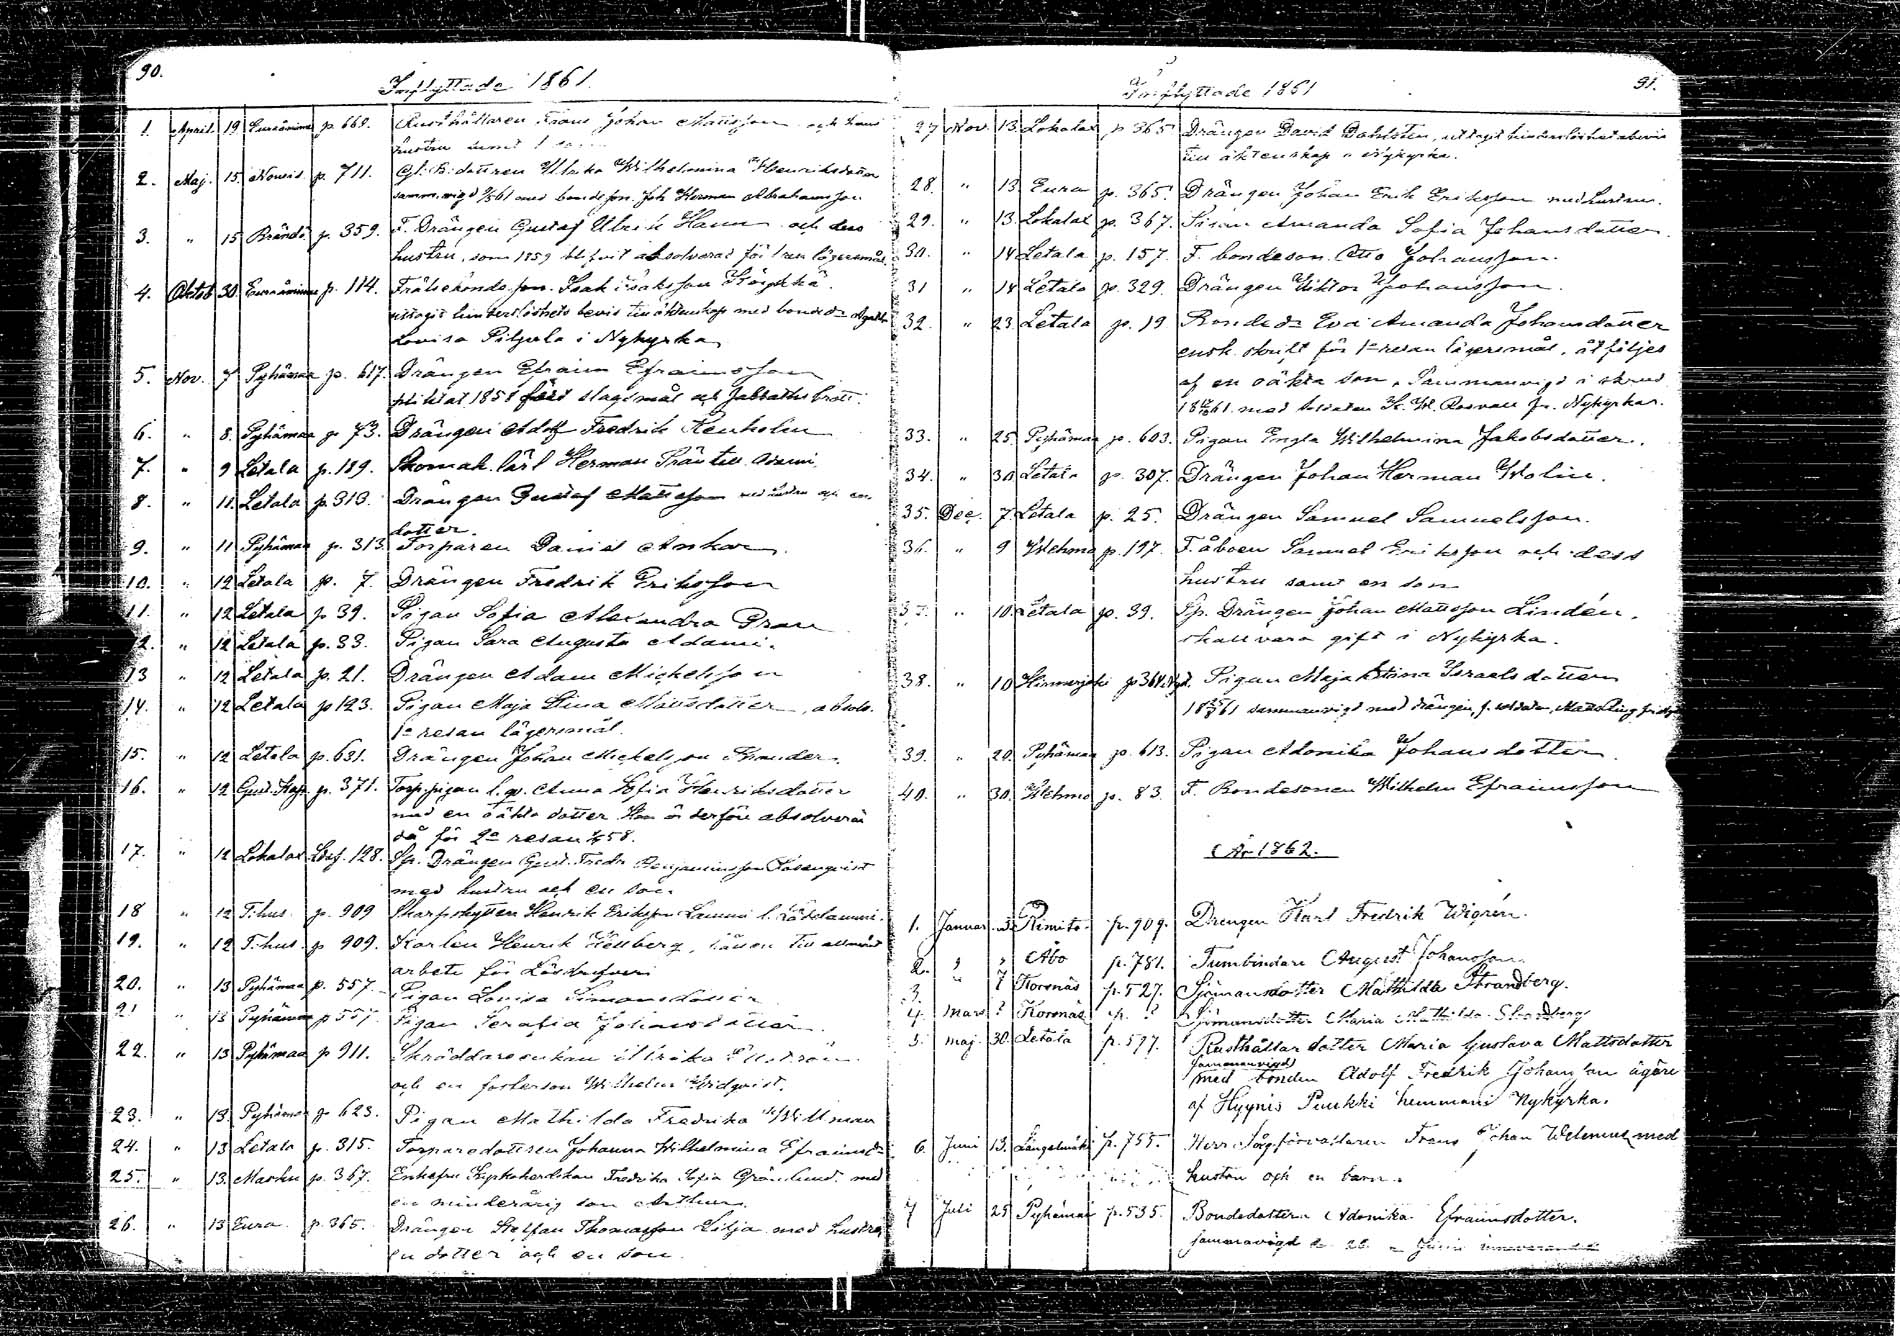 90.
Inflyttade 1861.
1. April 19 Euraåminne p. 669. Rusthållaren Frans Johan Mattsson och hans
hustru samt 1
2. Maj. 15. Nousis p. 711. dottren Ulrika Wilhelmina Henriksdotter
samm.vigd 61 med bondeson. Joh Herman Abrahamsson
3. " 15 Brändö p. 359. F. Drängen Gustaf Ulrik Hamn och dess
hustru, som 1859 blifvit absolverad för 1 resan lägersmål.
4. Oktob 30. Euraåminne p. 114. Frälsebonde son. Isak Isaksson
uttagit hinderlöshets bevis till äktenskap med bonded:r Agatha
Lovisa Pilpola i Nykyrka
5. Nov. 7 Pyhämaa p. 617. Drängen Efraim Efraimsson
pliktat 1858 för slagsmål och sabbathsbrott.
6. " 8. Pyhämaa p. 73. Drängen Adolf Fredrik Renholm
7. " 9 Letala p. 189. Skomak. lärl Herman Frän till Adami
8. " 11. Letala p. 313. Drängen Gustaf Mattsson med hustru och en
dotter.
9. " 11 Pyhämaa p. 313. Torparen Daniel Ankar.
10. " 12 Letala p. 7. Drängen Fredrik Eriksson
11. " 12 Letala p. 39. Pigan Sofia Alexandra Gran
12. " 12 Letala p. 33. Pigan Sara Augusta Adami.
13 " 12 Letala p. 21. Drängen Adam Michelsson
14. " 12 Letala p 123. Pigan Maja Stina Mattsdotter, absolv.
1:a resan lägersmål.
15. " 12 Letala p. 631. Drängen Johan Michelsson
16. " 12 Gust. Kap p. 371. Torp.pigan Anna Sofia Henriksdotter
med en oäkta dotter. Hon är derföre absolverad
för 2:a resan 58.
17. " 12 Lokalax 128. Sp. Drängen Gust. Fredr Benjaminsson
med hustru och en son.
18 " 12 T. hus. p. 909 Skarpskytten Henrik Eriksson Lammi l. Lökslammi.
19. " 12 T. hus p 909. Karlen Henrik Hellberg, till allmänt
arbete för Lösdrifveri
20. " 13 Pyhämaa p. 557. Pigan Lovisa Simonsdotter
21 " 13 Pyhämaa p 557. Pigan Serafia Johansdotter.
22. " 13 Pyhämaa p 911. Skräddareenkan Ulrika
och en fosterson Wilhelm Widqvist.
23. " 13. Pyhämaa p 623. Pigan Mathilda Fredrika Willman
24. " 13 Letala p. 315. Torparedottren Johanna Wilhelmina Efraimsd:r
25. " 13. Masku p. 367. Enkefru Kyrkoherdskan Fredrika Sofia Grönlund med
en minderårig son Arthur.
26. " 13 Eura p. 365. Drängen Staffan Thomasson Lilja med hustru,
en dotter och en son.
91.
Inflyttade 1861
27 Nov. 13. Lokalax p 365 Drängen David Dahlsten, uttagit hinderlöshetsbevis
till äktenskap i Nykyrka.
28. " 13 Eura p. 365. Drängen Johan Erik Eriksson med hustru.
29. " 13. Lokalax p. 367. Pigan Amanda Sofia Johansdotter.
30. " 14 Letala p. 157. F. bondeson Otto Johansson.
31 " 14 Letala p. 329. Drängen Viktor Johansson.
32. " 23 Letala p. 19 Bonded:r Eva Amanda Johansdotter
ensk. skrift för 1:a resan lägersmål, åtföljes
af en oäkta son. Sammanvigd i
61 med soldaten K. W. Rosvall fr. Nykyrkar.
33. " 25. Pyhämaa p. 603. Pigan Engla Wilhelmina Jakobsdotter.
34. " 30 Letala p. 307. Drängen Johan Herman Wolin.
35. Dec. 7. Letala p. 25. Drängen Samuel Samuelsson.
36. " 9 Wehmo p. 197. F. åboen Samuel Eriksson och dess
hustru samt en son
37. " 10. Letala p. 39. Sp. Drängen Johan Mattsson Lindén.
skall vara gift i Nykyrka.
38. " 10 Hinnerjoki p 364. Pigan Maja Stina Israelsdotter
61 sammanvigd med drängen, f. soldaten, Matts
39. " 20. Pyhämaa p. 613. Pigan Adonika Johansdotter.
40. " 30. Wehmo p. 83. F. Bondesonen Wilhelm Efraimsson
År 1862.
1. Januar. Kimito. p. 909. Drengen Karl Fredrik Wigrén.
2. " " Åbo p. 781. Tunnbindare August Johansson.
3. " 7 Korsnäs p. 527. Sjömansdotter Mathilda Strandberg.
4. Mars ? Korsnäs p. ? Sjömansdotter Maria Mathilda Strandberg
5. Maj. 30. Letala p. 577. Rusthållardotter Maria Gustava Mattsdotter
sammanvigd
med bonden Adolf Fredrik Johansson ägare
af Hyynis Puukki hemmani Nykyrka.
6. Juni 13. Längelmäki p. 755. Herr förvaltaren Frans Johan Welenius med
hustru och en barn.
7 Juli 25 Pyhämaa p. 535. Bondedottern Adonika Efraimsdotter.
sammanvigd d. 26 Juni innevarande